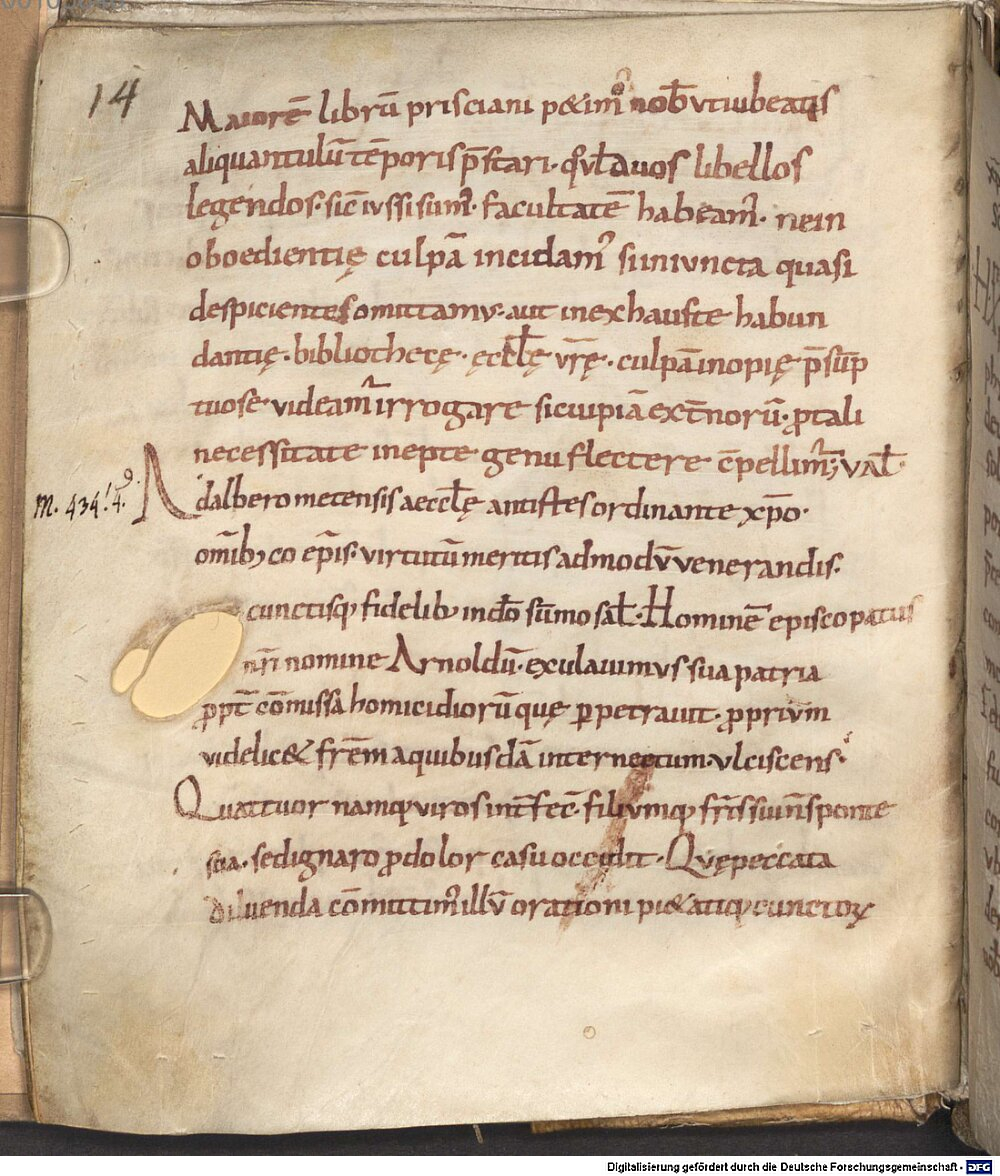 14
Maiorē librū prisciani p&im' nob̄ vt iubeatis
aliquantulū tēporis p̄stari· duos libellos
legendos· sic̄ iussi sum'· facultatē habeam'· ne in
oboedientię culpā incidam' si iniuncta quasi
despicientes omittamus· aut inexhauste habun
dantię· bibliothecę· ęccl̄ę vr̄ę· culpā inopię p̄sūp
tuose· videam'r irrogare si cupiā ext̄norū· ꝓ tali
necessitate inepte genu flectere cōpellim'r; val̄·
m. 434.
Adalbero metensis aeccl̄ę antistes ordinante xp̄o·
om̄ib; co ep̄is· virtutū meritis admodū venerandis·
cunctisq; fidelib; in dn̄o sūmo sal̄· Hominē episcopatus
nr̄i nomine Arnoldū· exulauimus sua patria
ꝓpt̄ cōmissa homicidiorū quę ꝑpetrauit· ꝓprium
videlic& fr̄em a quibusdā internectum· ulciscens·
Quattuor namq; viros int̄fec̄· filiumq; fr̄is sui n̄ sponte
sua· sed ignaro ꝓdolor casu occidit· Quę peccata
diluenda cōmittim' illū orationi pi&atiq; cunctoꝝ
Digitalisierung gefördert durch die Deutsche Forschungsgemeinschaft - DFG